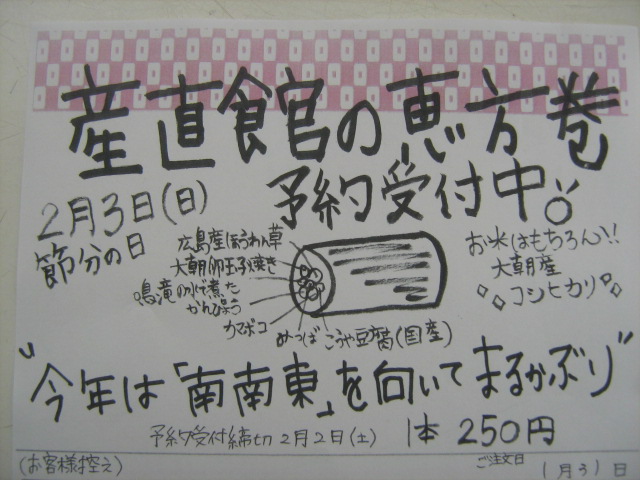 産直館の恵方巻
予約受付中
2月3日(日)
節分の日
広島産ほうれん草
大朝卵玉子焼き
鳴滝の水で煮た
かんぴょう
カマボコ
みつば
こうや豆腐(国産)
お米はもちろん!!
大朝産
コシヒカリ
"今年は「南南東」を向いてまるかぶり"
予約受付締切 2月2日(土)
1本 250円
(お客様控え)
ご注文日
1月31日